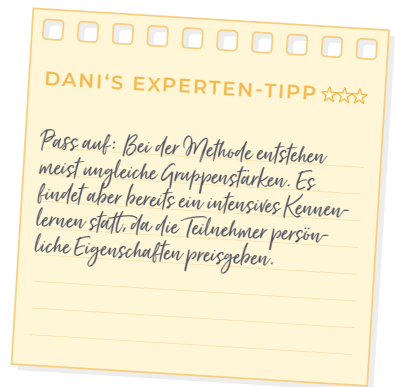 DANI‘S EXPERTEN-TIPP
Pass auf: Bei der Methode entstehen
meist ungleiche Gruppenstärken. Es
findet aber bereits ein intensives Kennen-
lernen statt, da die Teilnehmer persön-
liche Eigenschaften preisgeben.